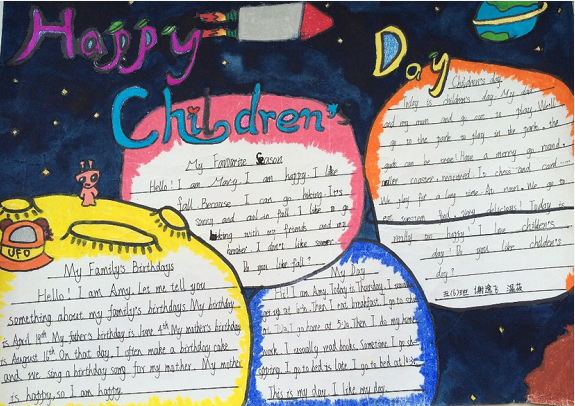 Happy
Children's
Day
Children's day
Today is children's day. My dad
and my mum and go can is play. Well
go to the park to play in the park. the
park can be nose! Have a merry-go-round.
roller coaster.
We play for a long time. At noon. We go to
food. very delicious! Today is
really so happy! I love children's
day! Do you like children's
day?
My Favourite Season
Hello! I am Mary. I am happy. I like
fall. Because I can go hiking. It's
sunny and in fall. I like to go
with my friends and my
I don't like
Do you like fall?
UFO
My Family's Birthdays
Hello! I am Amy. Let me tell you
something about my family's birthdays. My birthday
is April 19th. My father's birthday is June 4th. My mother's birthday
is August 16th. On that day, I often make a birthday cake
and we song a birthday song for my mother. My mother
is happy, so I am happy.
My Day
Hi! I am Amy. Today is Thursday. I
get up at Then I eat breakfast. I go to
at I go home at Then I do my home
work. I usually read books. Sometime I go
I go to bed is late. I go to bed at
This is my day. I like my day.